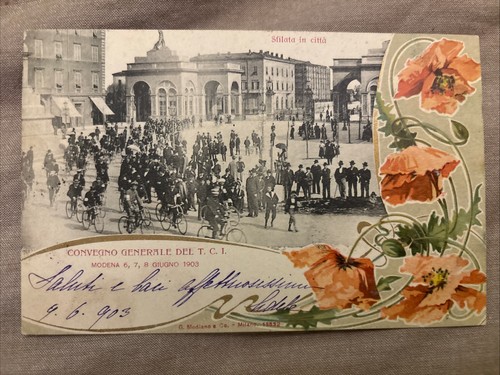 Sfilata in città
CONVEGNO GENERALE DEL T. C. I.
MODENA 6, 7, 8 GIUGNO 1903
Saluti e baci affettuosissimi
9. 6. 903